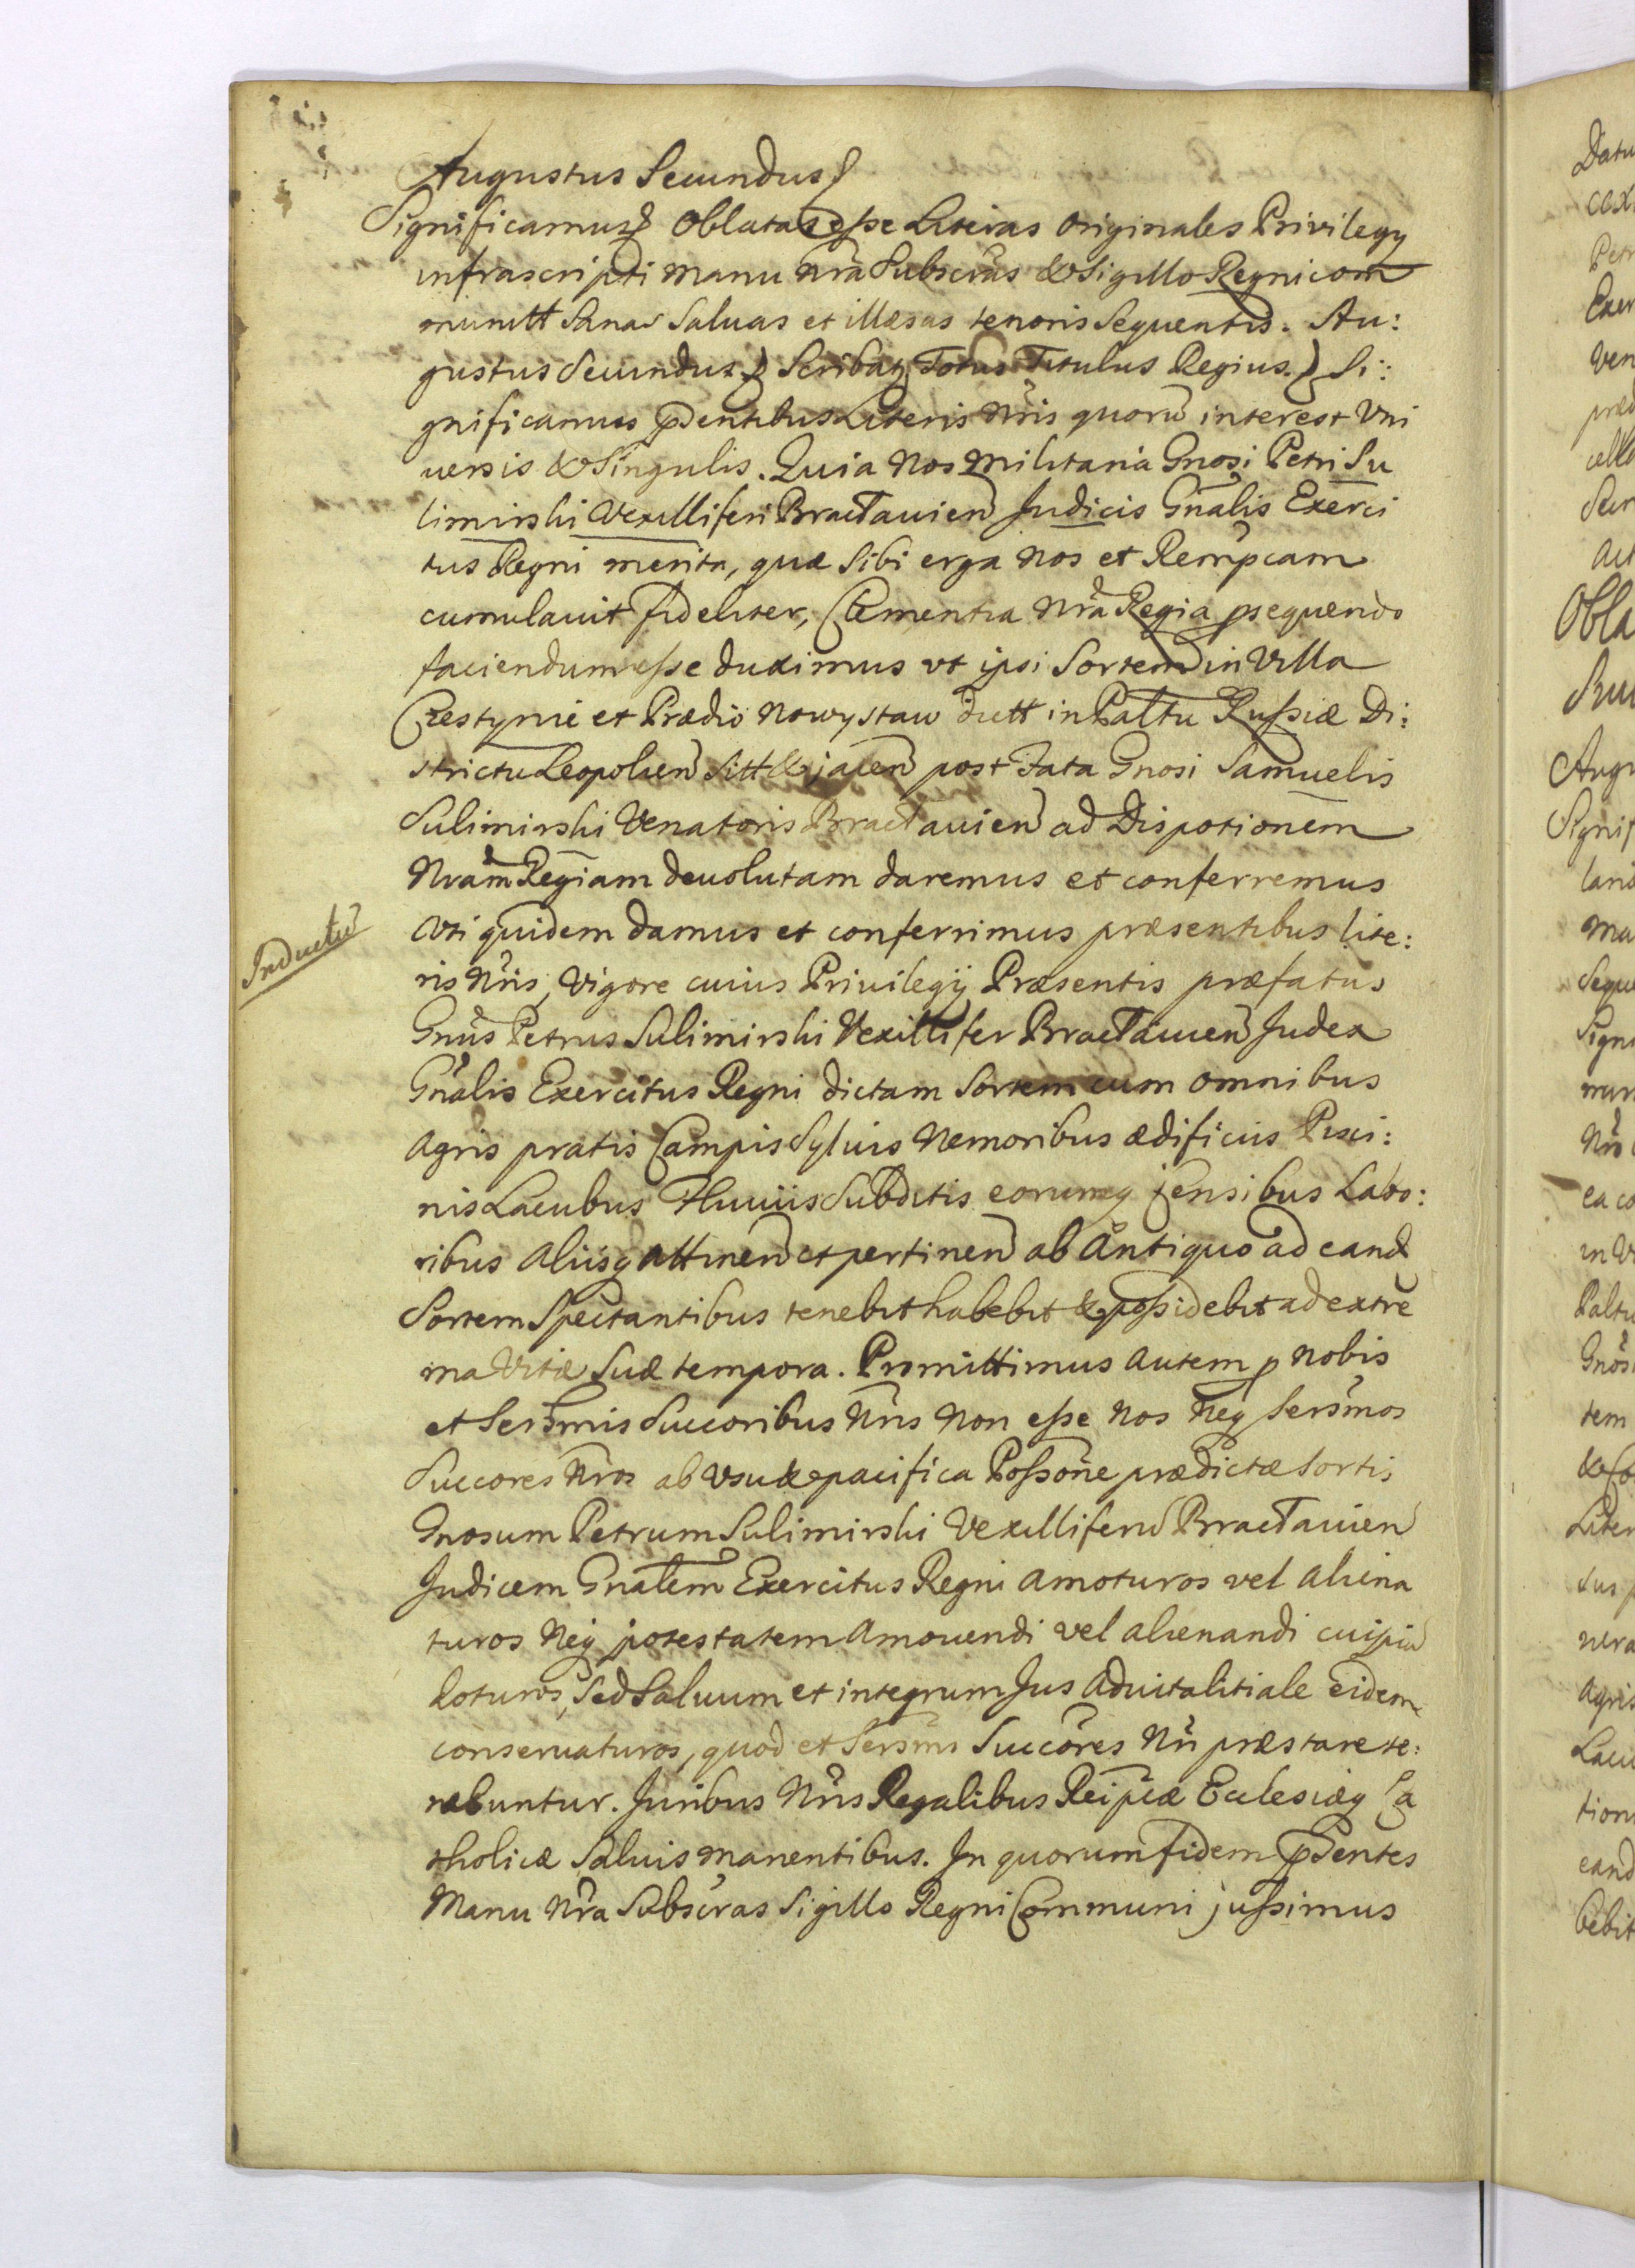 Augustus Secundus
Significamus Oblatas esse Literas Originales Privilegy
infrascripti manu Nrã Subscrãs & Sigillo Regni com
munitt Sanas Saluas et illæsas tenoris Sequentis. Au:
gustus Secundus Scribatz Totus Titulus Regius. Si:
gnificamus pñsentibus Literis Nris quorũ interest Vni
uersis & Singulis. Quia Nos Militaria Gnosi Petri Su
limirski Vexilliferi Bractauien Judicis Gnãlis Exerci
tus Regni merita, quæ Sibi erga Nos et Rempcam
cumulauit fideliter, Clementia Nrã Regia psequendo
faciendum esse duximus vt ipsi Sortem in Villa
Czestynie et Prædio Nowystaw dictt in Paltu Russiæ Di:
strictu Leopolien Sitt & jacen post Fata Gnosi Samuelis
Sulimirski Venatoris Bractauien ad Dispotionem
Nram Regiam deuolutam daremus et conferremus
Vti quidem damus et conferrimus præsentibus lite:
Inductũ
ris Nris, Vigore cuius Priuilegÿ Præsentis præfatus
Gnus Petrus Sulimirski Vexillifer Bractauien Judex
Gnãlis Exercitus Regni dictam Sortem cum omnibus
Agris pratis Campis Syluis Nemoribus ædificiis Pisci:
nis Lacubus Fluuiis Subditis eorumq Censibus Labo:
ribus Aliisq attinen et pertinen ab Antiquo ad eand
Sortem Spectantibus tenebit habebit & possidebit ad extre
ma Vitæ Suæ tempora. Promittimus Autem p nobis
et Sersmis Succoribus Nris Non esse Nos Neq Sersmos
Succores Nros ab Vsu & pacifica Possone prædictæ Sortis
Gnosum Petrum Sulimirski Vexilliferũ Bractauien
Judicem Gnalem Exercitus Regni Amoturos vel Aliena
turos Neq potestatem Amouendi vel alienandi cuipiã
daturos, Sed Saluum et integrum Jus Aduitalitiale eidem
conseruaturos, quod et Sersmi Succores Nri præstare te:
nebuntur. Juribus Nris Regalibus Reipcæ Eclesiæq Ca
tholicæ Saluis manentibus. In quorum fidem pñsentes
Manu Nra Subscras Sigillo Regni Communi jussimus